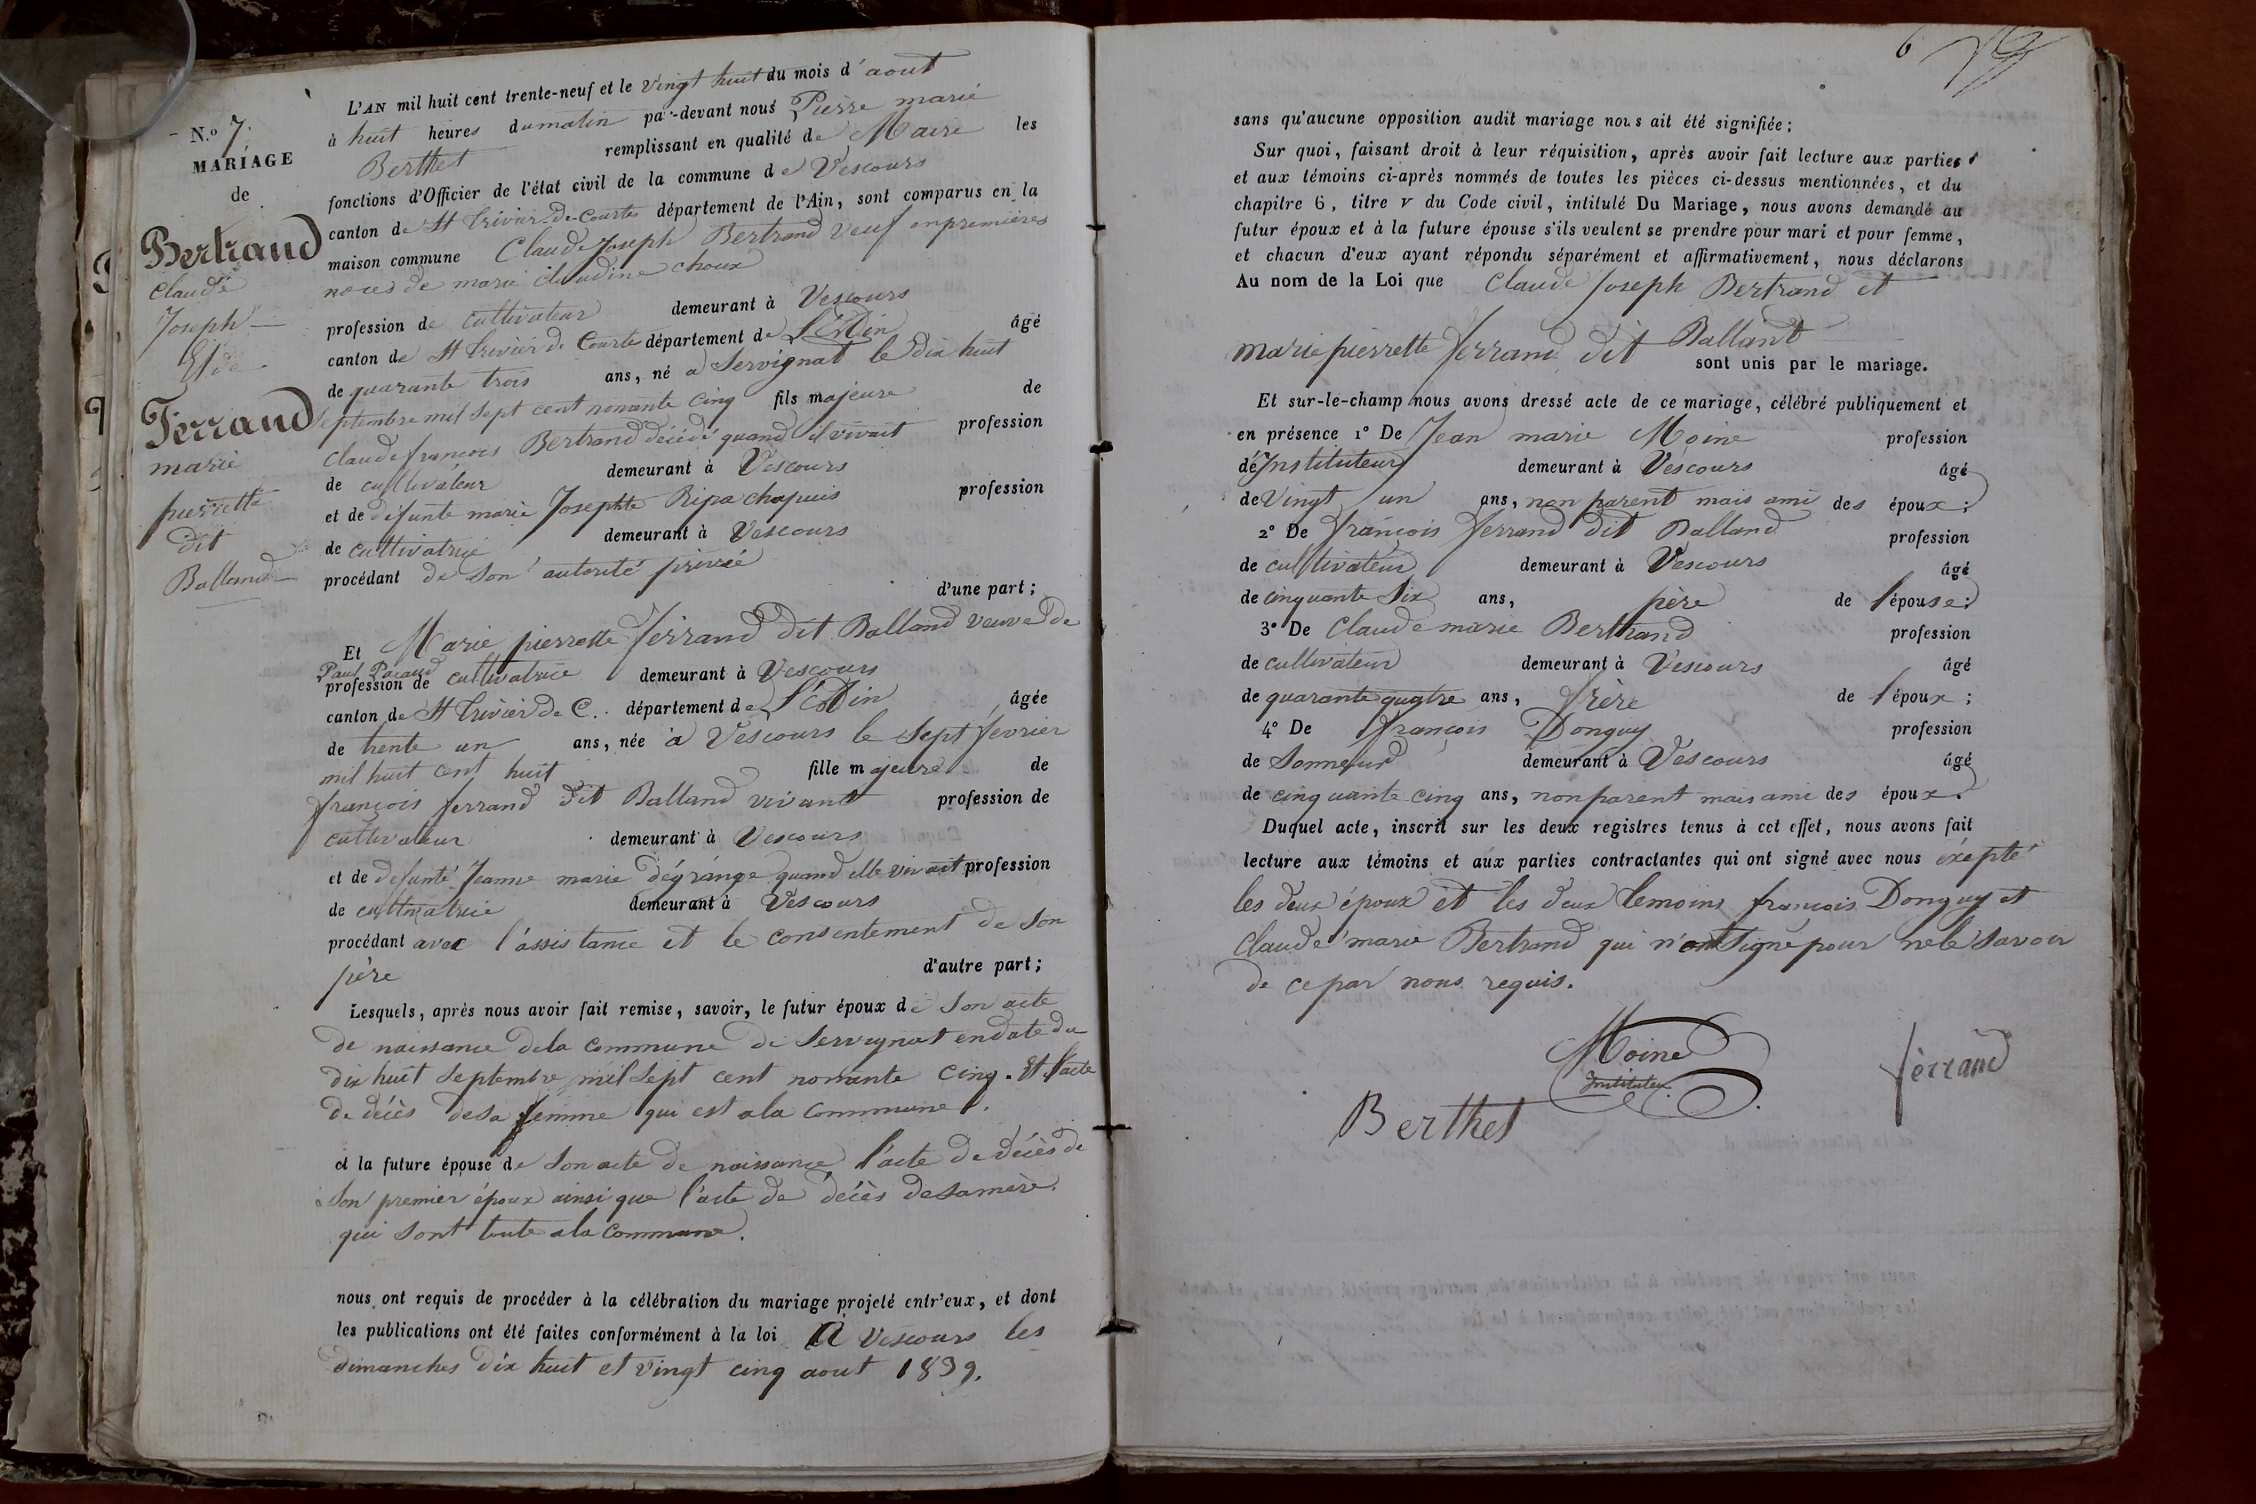 N.º 7.
MARIAGE
de
Bertrand
Claude
Joseph
Et de
Ferrand
marie
pierrette
dit
Balland
L'AN mil huit cent trente-neuf et le vingt huit du mois d'aout
à huit heures du matin par-devant nous Pierre marie
Berthet remplissant en qualité de Maire les
fonctions d'Officier de l'état civil de la commune de Vescours
canton de St Trivier-de-Courtes département de l'Ain, sont comparus en la
maison commune Claude Joseph Bertrand veuf en premières
noces de marie claudine choux
profession de cultivateur demeurant à Vescours
canton de St Trivier de Courtes département de L'Ain âgé
de quarante trois ans, né a Servignat le dix huit
septembre mil sept cent nonante cinq fils majeure de
claude françois Bertrand décédé quand il vivait profession
de cultivateur demeurant à Vescours
et de défunte marie Josephte Ripa chapuis profession
de cultivatrice demeurant à Vescours
procédant de son autorité privée
d'une part;
Et Marie pierrette ferrand dit Balland veuve de
Paul Pacaud
profession de cultivatrice demeurant à Vescours
canton de St Trivier de C. département de L'Ain âgée
de trente un ans, née a Vescours le sept février
mil huit cent huit fille majeure de
françois ferrand dit Balland vivant profession de
cultivateur demeurant à Vescours
et de defunte Jeanne marie dégrange quand elle vivait profession
de cultivatrice demeurant à Vescours
procédant avec l'assistance et le consentement de son
père d'autre part;
Lesquels, après nous avoir fait remise, savoir, le futur époux de son acte
de naissance dela commune de Servignat en date du
dix huit septembre mil sept cent nonante cinq. Et l'acte
de décès de sa femme qui est a la commune.
et la future épouse de son acte de naissance l'acte de décès de
son premier époux ainsi que l'acte de décès de sa mère.
qui sont toute a la commune.
nous ont requis de procéder à la célébration du mariage projeté entr'eux, et dont
les publications ont été faites conformément à la loi A Vescours les
dimanches dix huit et vingt cinq aout 1839.
6
sans qu'aucune opposition audit mariage nous ait été signifiée;
Sur quoi, faisant droit à leur réquisition, après avoir fait lecture aux parties
et aux témoins ci-après nommés de toutes les pièces ci-dessus mentionnées, et du
chapitre 6, titre v du Code civil, intitulé Du Mariage, nous avons demandé au
futur époux et à la future épouse s'ils veulent se prendre pour mari et pour femme,
et chacun d'eux ayant répondu séparément et affirmativement, nous déclarons
Au nom de la Loi que Claude Joseph Bertrand et
marie pierrette ferrand dit Balland
sont unis par le mariage.
Et sur-le-champ nous avons dressé acte de ce mariage, célébré publiquement et
en présence 1º De Jean marie Moine profession
dé Instituteur demeurant à Vescours âgé
de Vingt un ans, non parent mais ami des époux;
2º De françois ferrand dit Balland profession
de cultivateur demeurant à Vescours âgé
de cinquante six ans, père de l'épouse;
3º De Claude marie Bertrand profession
de cultivateur demeurant à Vescours âgé
de quarante quatre ans, frère de l'époux;
4º De françois Donguy profession
de Sonneur demeurant à Vescours âgé
de cinquante cinq ans, non parent mais ami des époux.
Duquel acte, inscrit sur les deux registres tenus à cet effet, nous avons fait
lecture aux témoins et aux parties contractantes qui ont signé avec nous éxepté
les deux époux et les deux temoins françois Donguy et
Claude marie Bertrand qui n'ont signé pour ne le savoir
de ce par nous requis.
Moine
Instituteur
ferrand
Berthet